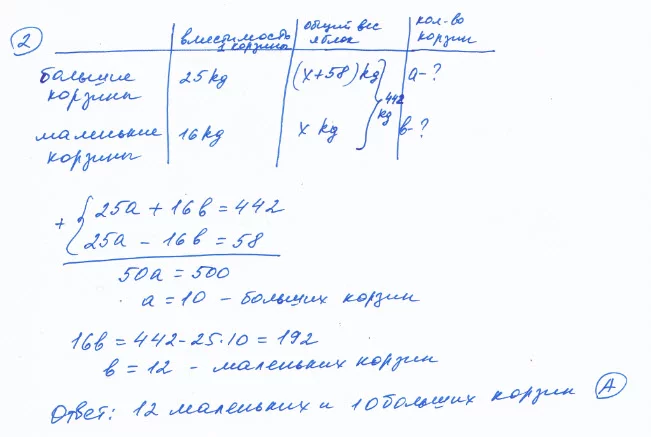 2
вместимость 1 корзины | общий вес яблок | кол-во корзин
большие корзины | 25 kg | (x+58) kg | a-?
маленькие корзины | 16 kg | x kg | в-?
442 kg
+ { 25a + 16в = 442
25a - 16в = 58
50a = 500
a = 10 - больших корзин
16в = 442 - 25·10 = 192
в = 12 - маленьких корзин
Ответ: 12 маленьких и 10 больших корзин (A)